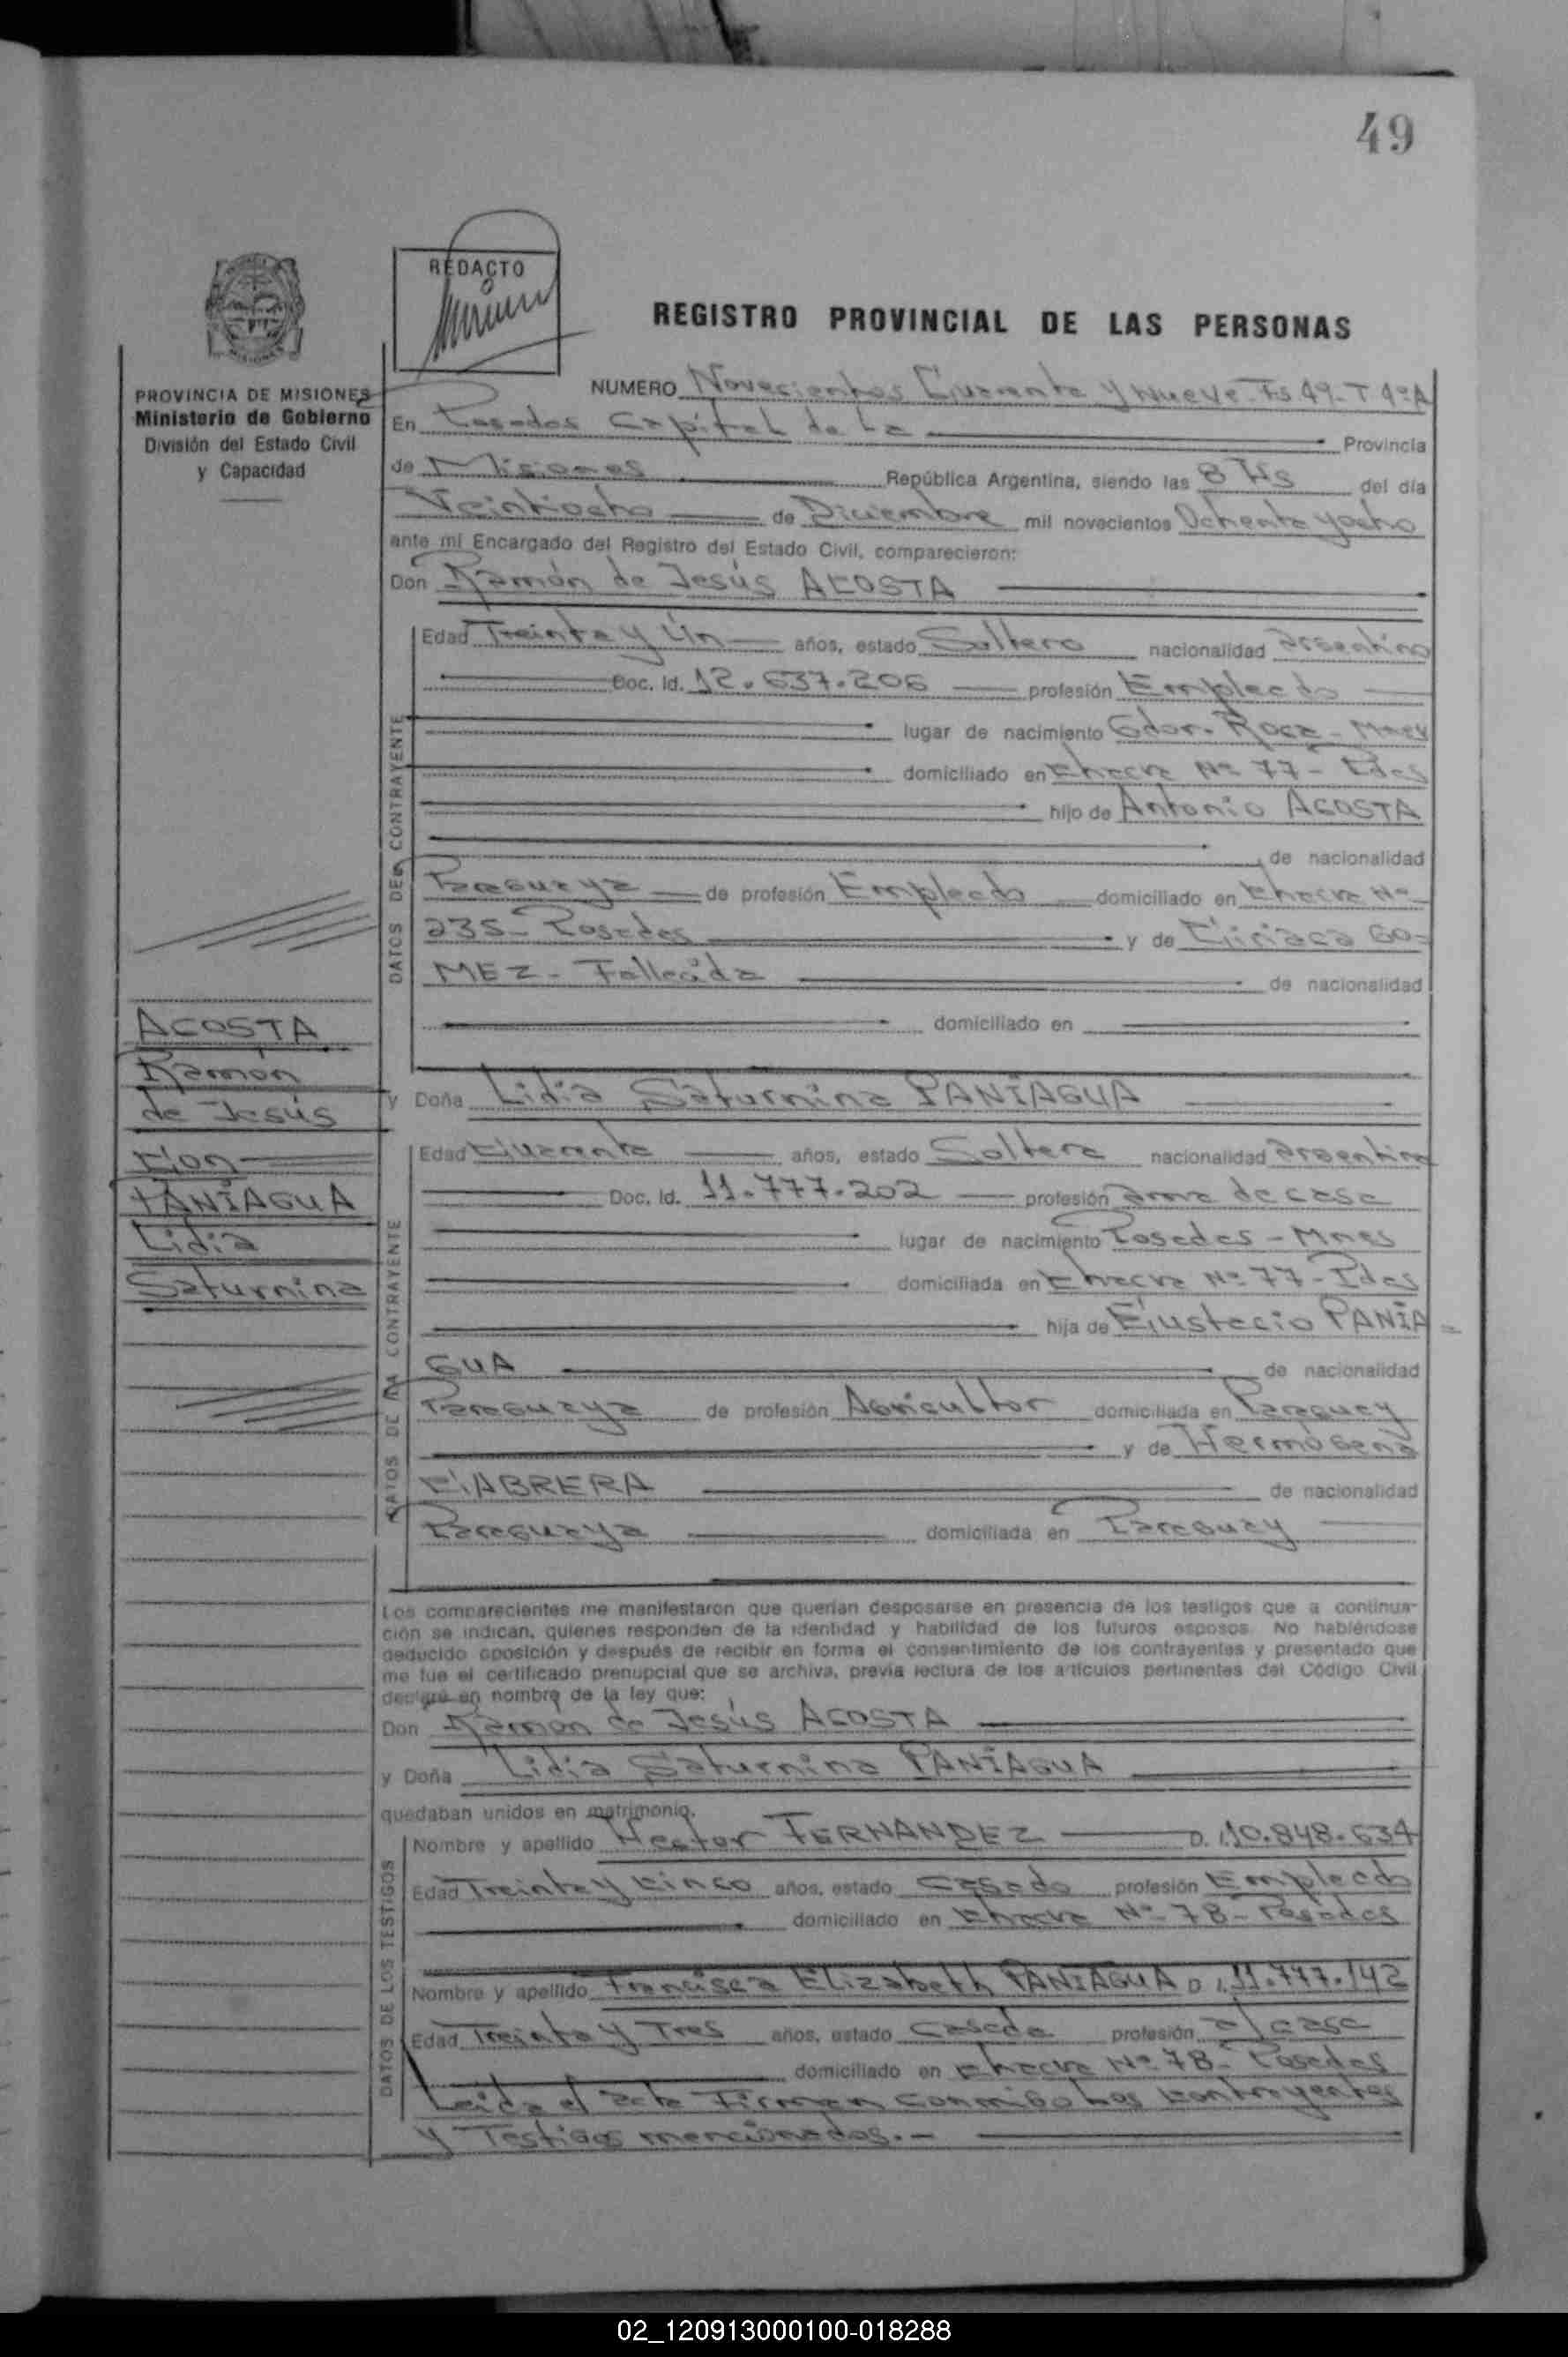 49
REDACTO
REGISTRO PROVINCIAL DE LAS PERSONAS
PROVINCIA DE MISIONES
Ministerio de Gobierno
División del Estado Civil
y Capacidad
NUMERO Novecientos Cuarenta y Nueve - Fs. 49 - T 4º A
En Posadas Capital de La Provincia
de Misiones República Argentina, siendo las 8 Hs del día
Veintiocho de Diciembre mil novecientos Ochenta y ocho
ante mi Encargado del Registro del Estado Civil, comparecieron:
Don Ramón de Jesús ACOSTA
DATOS DEL CONTRAYENTE
Edad Treinta y Un años, estado Soltero nacionalidad argentino
Doc. Id. 12.637.206 profesión Empleado
lugar de nacimiento Gdor. Roca - Mnes
domiciliado en Chacra Nº 77 - Pdas
hijo de Antonio ACOSTA
de nacionalidad
Paraguaya de profesión Empleado domiciliado en Chacra Nº
235 - Posadas y de Ciriaca GO=
MEZ - Fallecida de nacionalidad
domiciliado en
ACOSTA
Ramón
de Jesús
Con
PANIAGUA
Lidia
Saturnina
y Doña Lidia Saturnina PANIAGUA
DATOS DE LA CONTRAYENTE
Edad Cuarenta años, estado Soltera nacionalidad argentina
Doc. Id. 11.777.202 profesión ama de casa
lugar de nacimiento Posadas - Mnes
domiciliada en Chacra Nº 77 - Pdas
hija de Eustacio PANIA-
GUA de nacionalidad
Paraguaya de profesión Agricultor domiciliada en Paraguay
y de Hermógena
CABRERA de nacionalidad
Paraguaya domiciliada en Paraguay
Los comparecientes me manifestaron que querían desposarse en presencia de los testigos que a continua-
ción se indican, quienes responden de la identidad y habilidad de los futuros esposos. No habiéndose
deducido oposición y después de recibir en forma el consentimiento de los contrayentes y presentado que
me fue el certificado prenupcial que se archiva, previa lectura de los artículos pertinentes del Código Civil
declaré en nombre de la ley que:
Don Ramón de Jesús ACOSTA
y Doña Lidia Saturnina PANIAGUA
quedaban unidos en matrimonio.
DATOS DE LOS TESTIGOS
Nombre y apellido Hector FERNANDEZ D.I. 10.848.634
Edad Treinta y Cinco años, estado Casado profesión Empleado
domiciliado en Chacra Nº 78 - Posadas
Nombre y apellido Francisca Elizabeth PANIAGUA D.I. 11.777.142
Edad Treinta y Tres años, estado Casada profesión a/casa
domiciliado en Chacra Nº 78 - Posadas
Leida el acta Firman conmigo Los Contrayentes
y Testigos mencionados.-
02_120913000100-018288